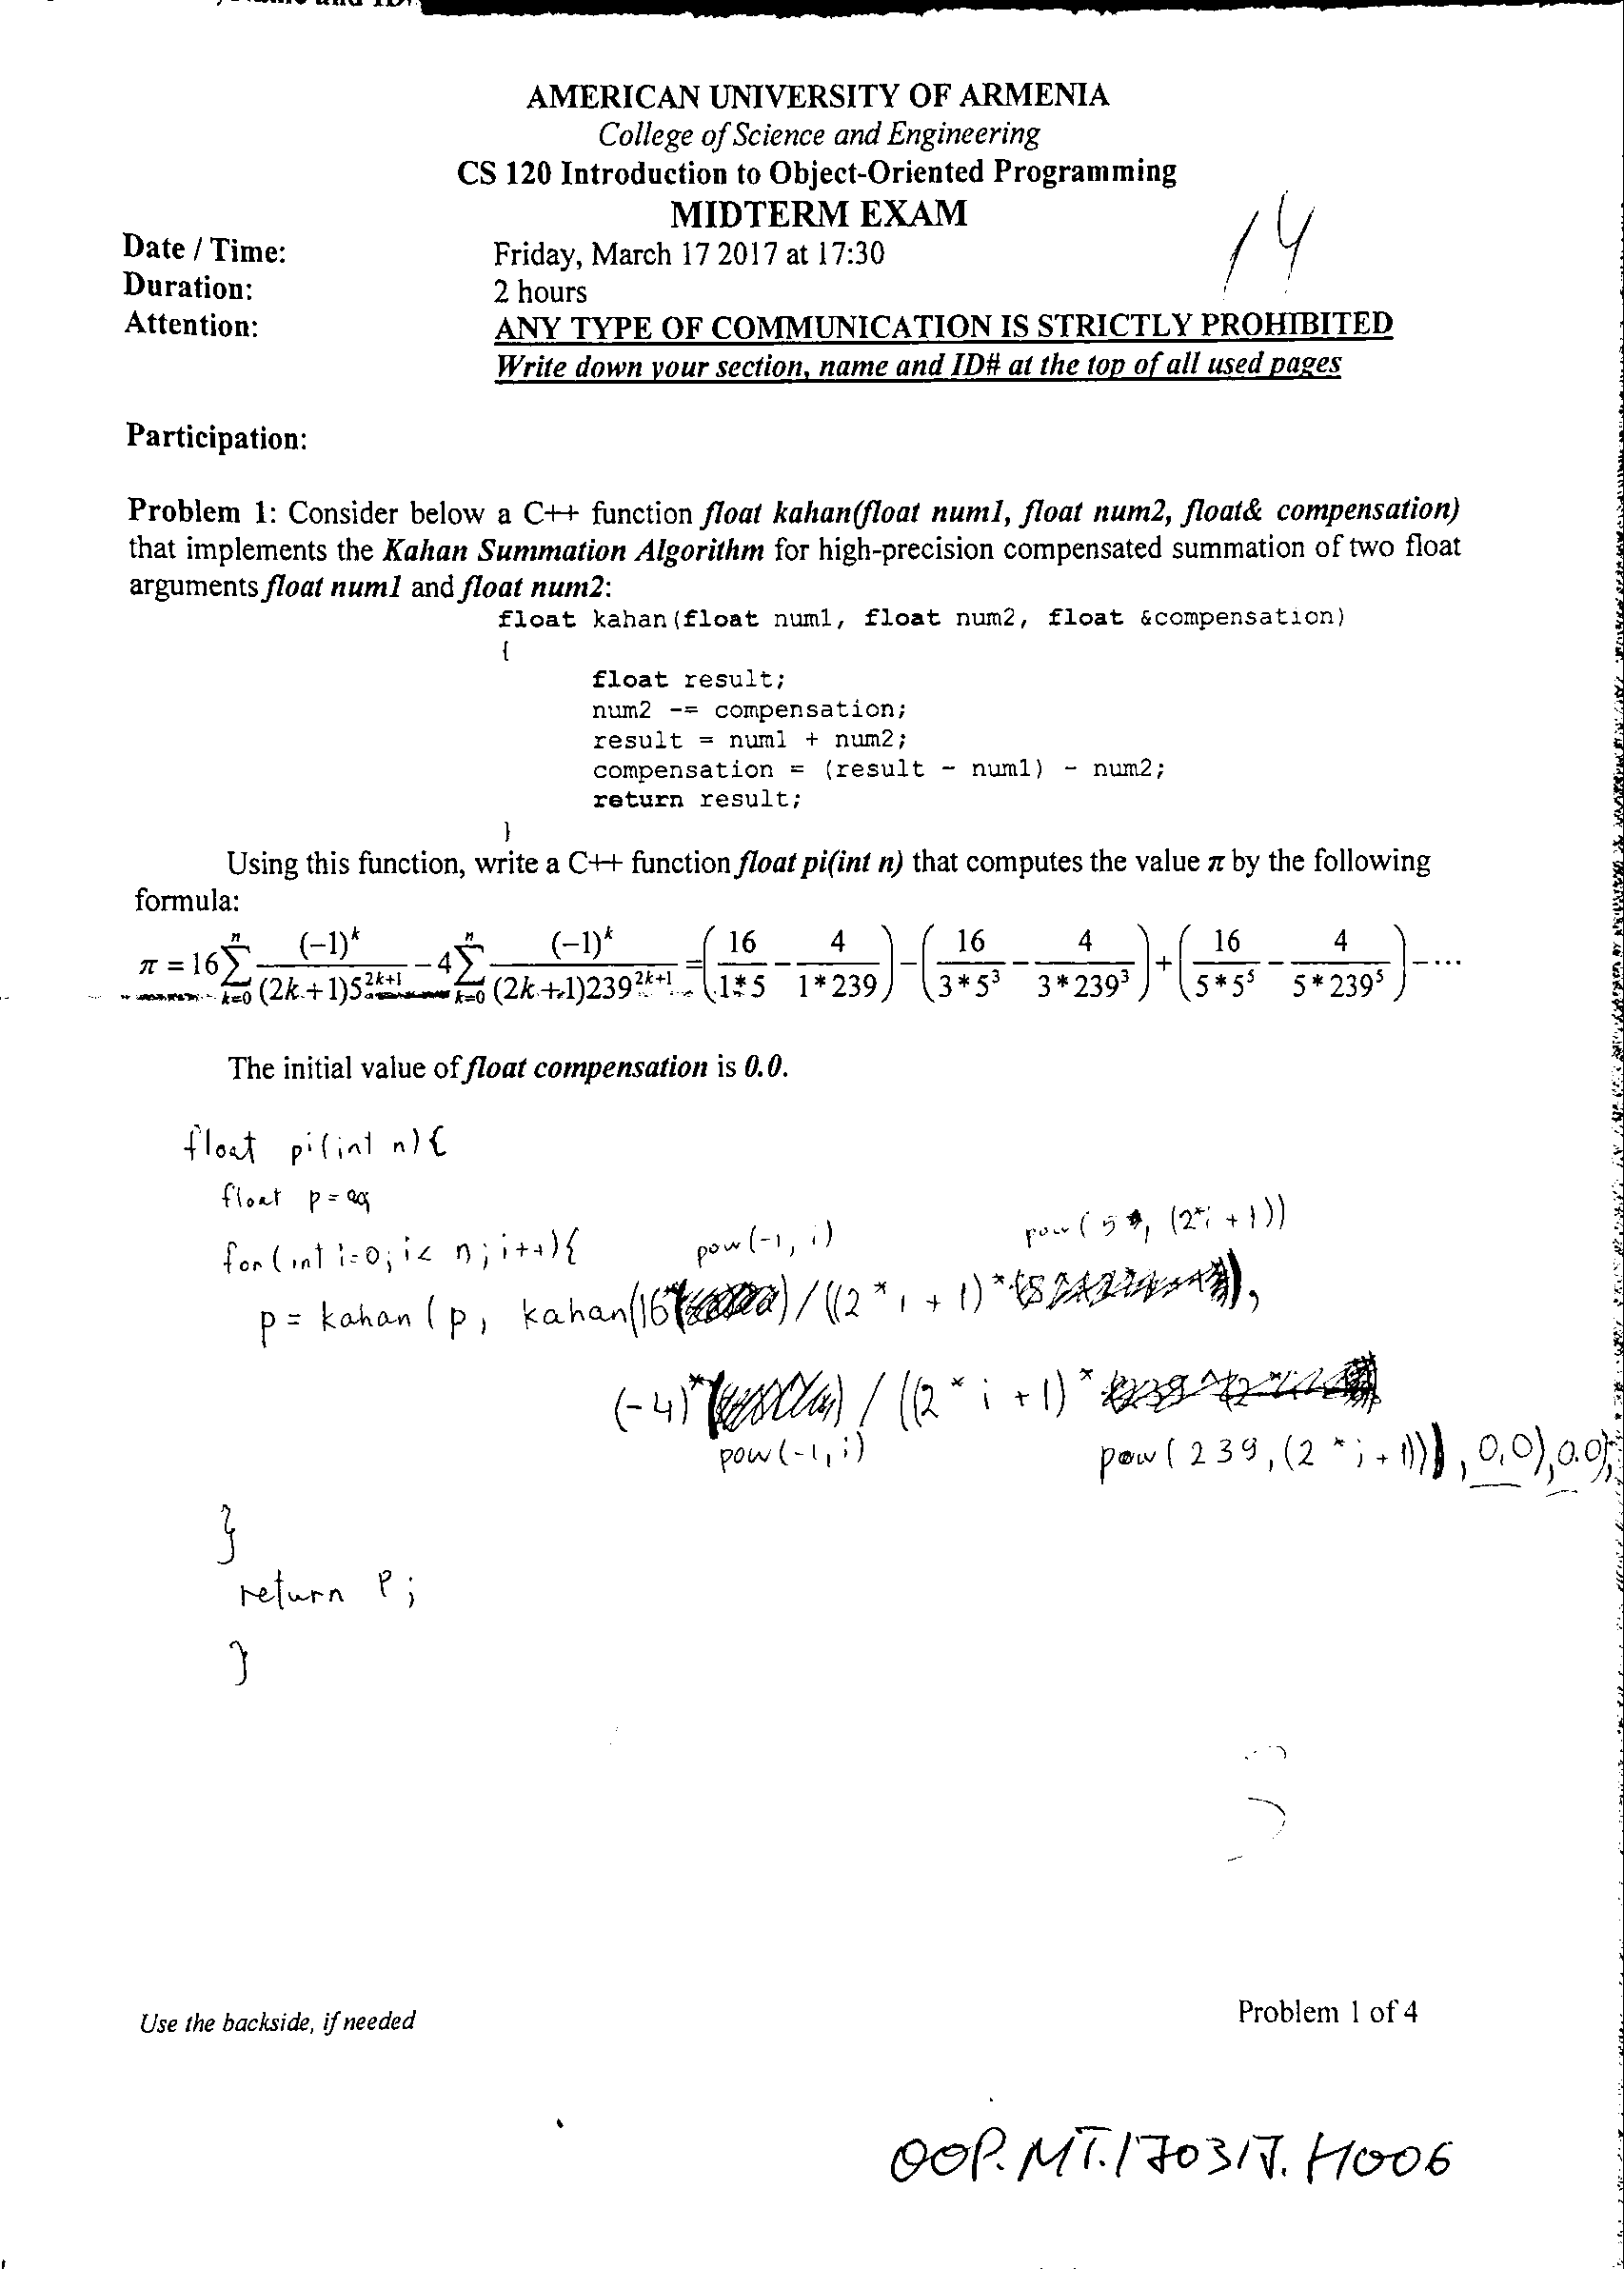 AMERICAN UNIVERSITY OF ARMENIA
College of Science and Engineering
CS 120 Introduction to Object-Oriented Programming
MIDTERM EXAM
14
Date / Time: Friday, March 17 2017 at 17:30
Duration: 2 hours
Attention: ANY TYPE OF COMMUNICATION IS STRICTLY PROHIBITED
Write down your section, name and ID# at the top of all used pages
Participation:
Problem 1: Consider below a C++ function float kahan(float num1, float num2, float& compensation)
that implements the Kahan Summation Algorithm for high-precision compensated summation of two float
arguments float num1 and float num2:
float kahan(float num1, float num2, float &compensation)
{
float result;
num2 -= compensation;
result = num1 + num2;
compensation = (result - num1) - num2;
return result;
}
Using this function, write a C++ function float pi(int n) that computes the value π by the following
formula:
π = 16 ∑_{k=0}^{n} (-1)^k / ((2k+1)5^{2k+1}) - 4 ∑_{k=0}^{n} (-1)^k / ((2k+1)239^{2k+1}) = (16/(1*5) - 4/(1*239)) - (16/(3*5^3) - 4/(3*239^3)) + (16/(5*5^5) - 4/(5*239^5)) - ⋯
The initial value of float compensation is 0.0.
float pi(int n){
float p =
for(int i=0; i< n; i++){
pow(-1, i) pow(5, (2*i +1))
p = kahan(p, kahan(16* / ((2*i + 1)* ,
(-4)* / ((2*i +1)*
pow(-1, i) pow(239, (2*i+1))), 0,0), 0.0);
}
return p;
}
Use the backside, if needed
Problem 1 of 4
OOP.MT.170317.H006